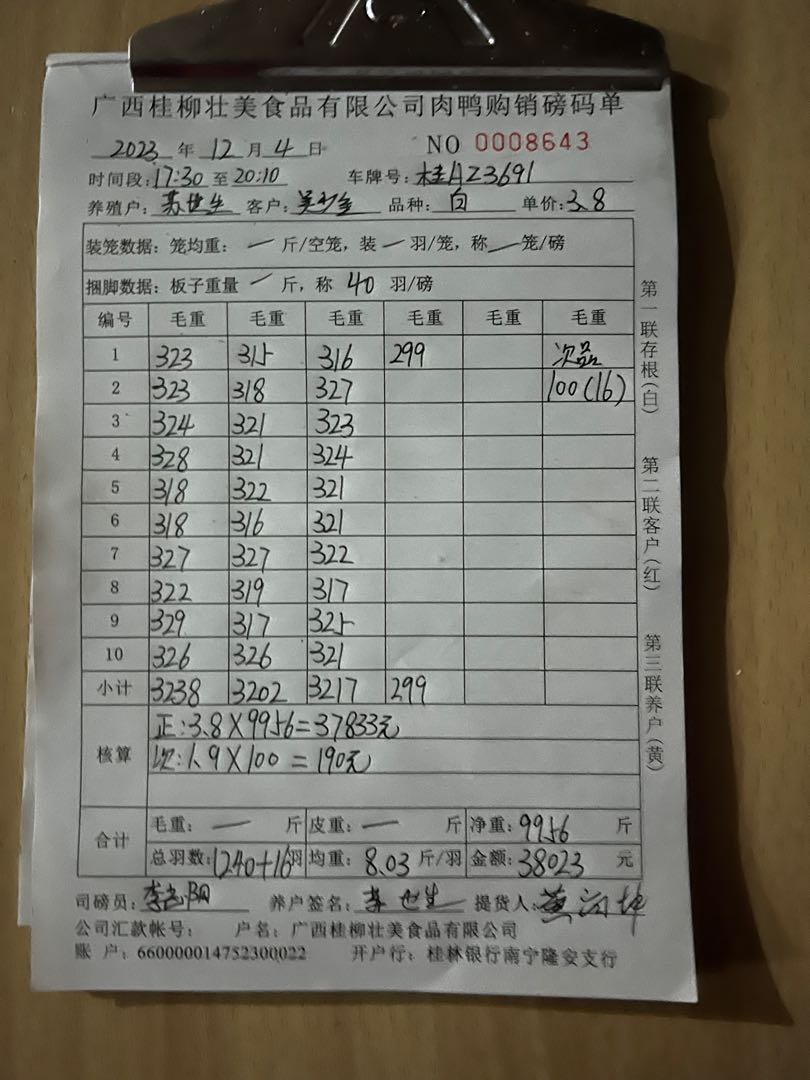 广西桂柳壮美食品有限公司肉鸭购销磅码单
2023 年 12 月 4 日 NO 0008643
时间段:17:30 至 20:10 车牌号:桂AZ3691
养殖户:苏世生 客户: 品种:白 单价:3.8
装笼数据:笼均重:一斤/空笼,装一羽/笼,称一笼/磅
捆脚数据:板子重量 一 斤,称 40 羽/磅
编号 毛重 毛重 毛重 毛重 毛重 毛重
1 323 315 316 299 次品
2 323 318 327 100(16)
3 324 321 323
4 328 321 324
5 318 322 321
6 318 316 321
7 327 327 322
8 322 319 317
9 329 317 325
10 326 326 321
小计 3238 3202 3217 299
核算
正:3.8×9956=37833元
次:1.9×100=190元
合计
毛重:一 斤 皮重:一 斤 净重:9956 斤
总羽数:1240+16羽 均重:8.03斤/羽 金额:38023 元
司磅员: 养户签名:世生 提货人:黄
公司汇款帐号: 户名:广西桂柳壮美食品有限公司
账 户:660000014752300022 开户行:桂林银行南宁隆安支行
第一联存根(白)
第二联客户(红)
第三联养户(黄)